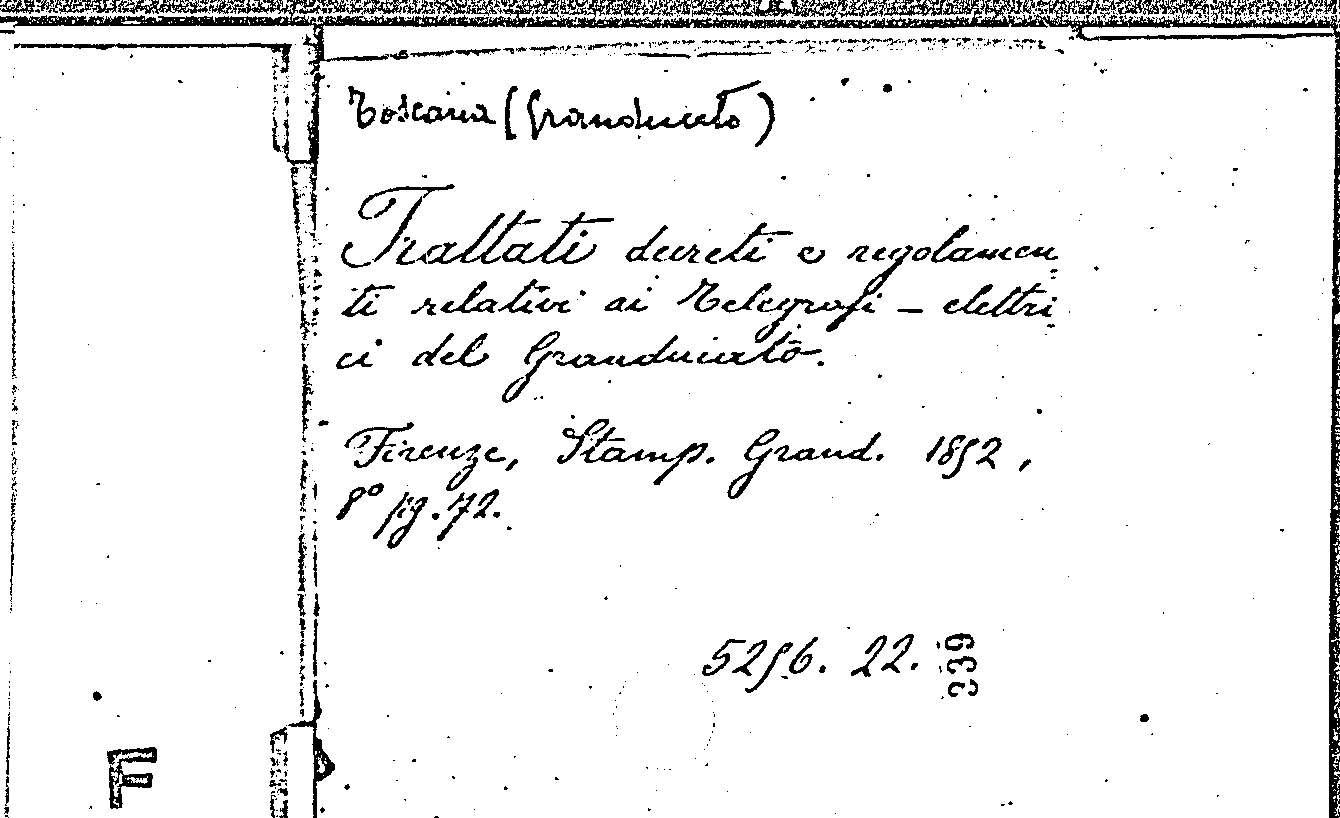 Toscana (Granducato)
Trattati decreti e regolamen
ti relativi ai Telegrafi - elettri
ci del Granducato.
Firenze, Stamp. Grand. 1852,
8° pg. 72.
5256. 22.
339
F